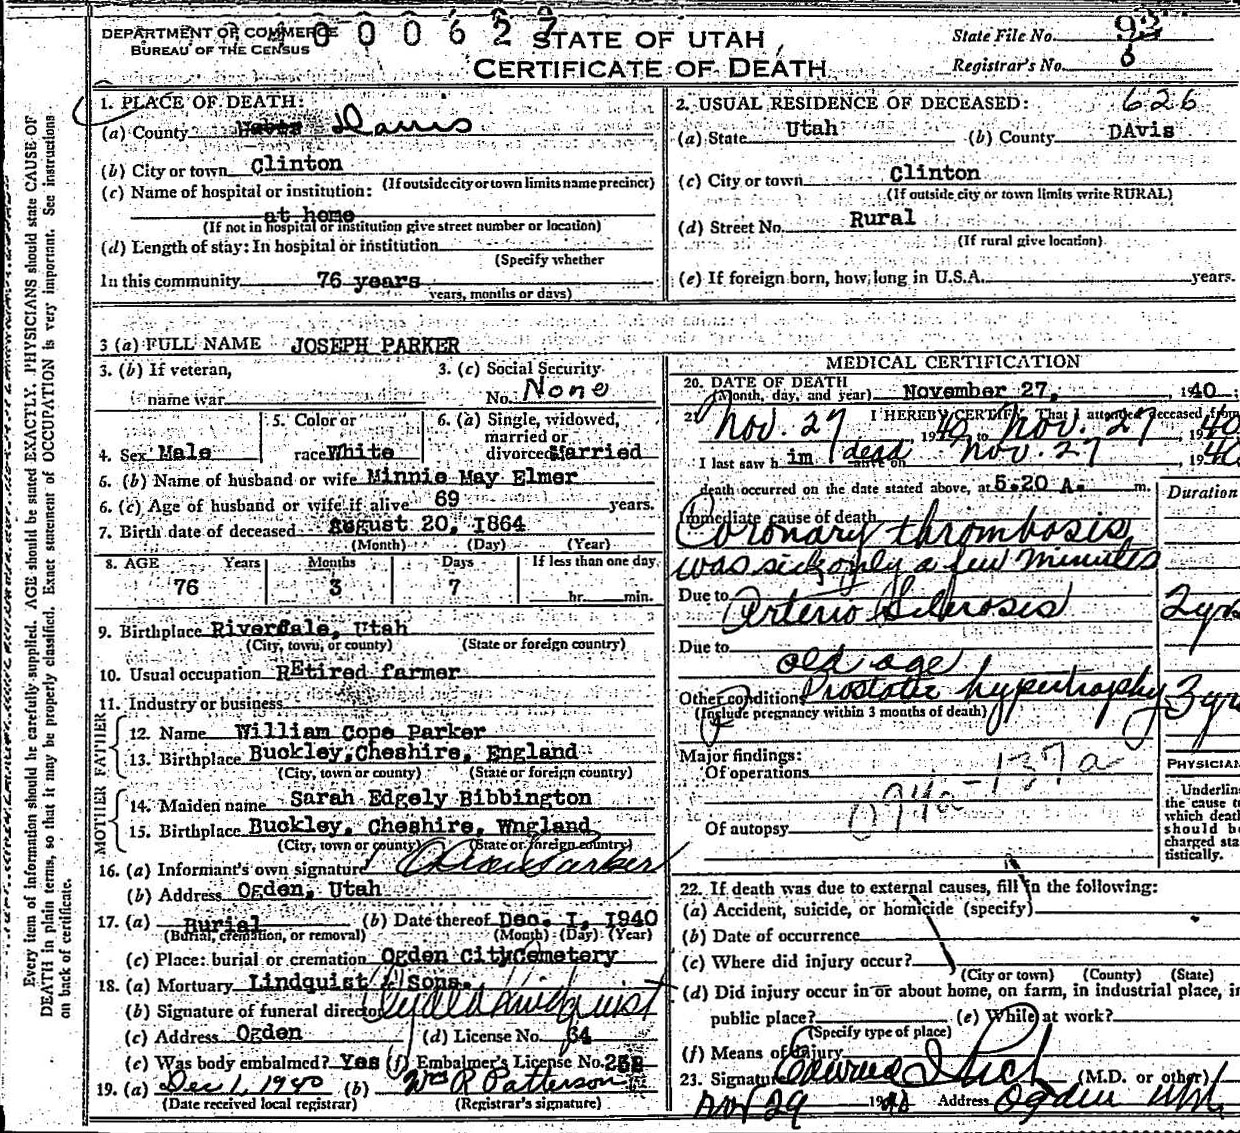 DEPARTMENT OF COMMERCE
BUREAU OF THE CENSUS
000627
STATE OF UTAH
CERTIFICATE OF DEATH
State File No. 93
Registrar's No. 6
Every item of information should be carefully supplied. AGE should be stated EXACTLY. PHYSICIANS should state CAUSE OF
DEATH in plain terms, so that it may be properly classified. Exact statement of OCCUPATION is very important. See instructions
on back of certificate.
1. PLACE OF DEATH:
(a) County Davis
(b) City or town Clinton
(If outside city or town limits name precinct)
(c) Name of hospital or institution:
at home
(If not in hospital or institution give street number or location)
(d) Length of stay: In hospital or institution
(Specify whether
In this community 76 years
years, months or days)
2. USUAL RESIDENCE OF DECEASED: 626
(a) State Utah (b) County DAvis
(c) City or town Clinton
(If outside city or town limits write RURAL)
(d) Street No. Rural
(If rural give location)
(e) If foreign born, how long in U.S.A. years.
3 (a) FULL NAME JOSEPH PARKER
3. (b) If veteran,
name war
3. (c) Social Security
No. None
4. Sex Male
5. Color or
race White
6. (a) Single, widowed,
married or
divorced Married
6. (b) Name of husband or wife Minnie May Elmer
6. (c) Age of husband or wife if alive 69 years.
7. Birth date of deceased August 20, I864
(Month) (Day) (Year)
8. AGE Years Months Days If less than one day
76 3 7 hr. min.
9. Birthplace Riverdale, Utah
(City, town, or county) (State or foreign country)
10. Usual occupation REtired farmer
11. Industry or business
FATHER
12. Name William Cope Parker
13. Birthplace Buckley, Cheshire, England
(City, town or county) (State or foreign country)
MOTHER
14. Maiden name Sarah Edgely Bibbington
15. Birthplace Buckley, Cheshire, Wngland
(City, town or county) (State or foreign country)
16. (a) Informant's own signature Parker
(b) Address Ogden, Utah
17. (a) Burial (b) Date thereof Dec. I, I940
(Burial, cremation, or removal) (Month) (Day) (Year)
(c) Place: burial or cremation Ogden City Cemetery
18. (a) Mortuary Lindquist & Sons.
(b) Signature of funeral director Clyde Lindquist
(c) Address Ogden (d) License No. 64
(e) Was body embalmed? Yes (f) Embalmer's License No.
19. (a) Dec 1, 1940 (b) Wm R Patterson
(Date received local registrar) (Registrar's signature)
MEDICAL CERTIFICATION
20. DATE OF DEATH
(Month, day, and year) November 27, 1940
21. I HEREBY CERTIFY, That I attended deceased from
Nov. 27 1940 to Nov. 27 1940
I last saw him dead alive on Nov. 27, 1940
death occurred on the date stated above, at 5.20 A. m.
Duration
Immediate cause of death
Coronary thrombosis
was sick only a few minutes
Due to Arterio Sclerosis 2 yrs
Due to old age
Other conditions Prostatic hypertrophy 3 yrs
(Include pregnancy within 3 months of death)
Major findings:
Of operations
094a-137a
Of autopsy
PHYSICIAN
Underline
the cause to
which death
should be
charged sta
tistically.
22. If death was due to external causes, fill in the following:
(a) Accident, suicide, or homicide (specify)
(b) Date of occurrence
(c) Where did injury occur?
(City or town) (County) (State)
(d) Did injury occur in or about home, on farm, in industrial place, in
public place? (e) While at work?
(Specify type of place)
(f) Means of injury
23. Signature Edward I Rich (M.D. or other)
Nov 29 1940 Address Ogden Utah